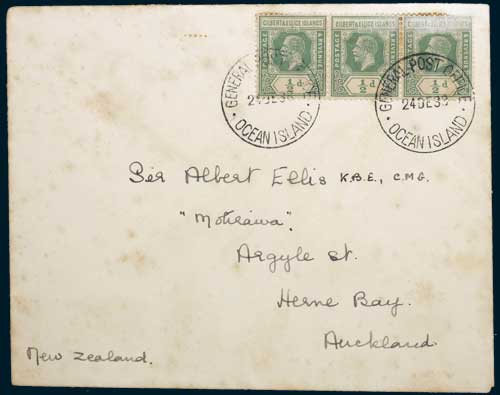 GILBERT & ELLICE ISLANDS GILBERT & ELLICE ISLANDS GILBERT & ELLICE ISLANDS
POSTAGE REVENUE POSTAGE REVENUE POSTAGE REVENUE
½d ½d ½d
GENERAL POST OFFICE
24 DE 38
OCEAN ISLAND
GENERAL POST OFFICE
24 DE 38
OCEAN ISLAND
Sir Albert Ellis K.B.E., C.M.G.
"Motirawa".
Argyle St.
Herne Bay.
Auckland.
New Zealand.